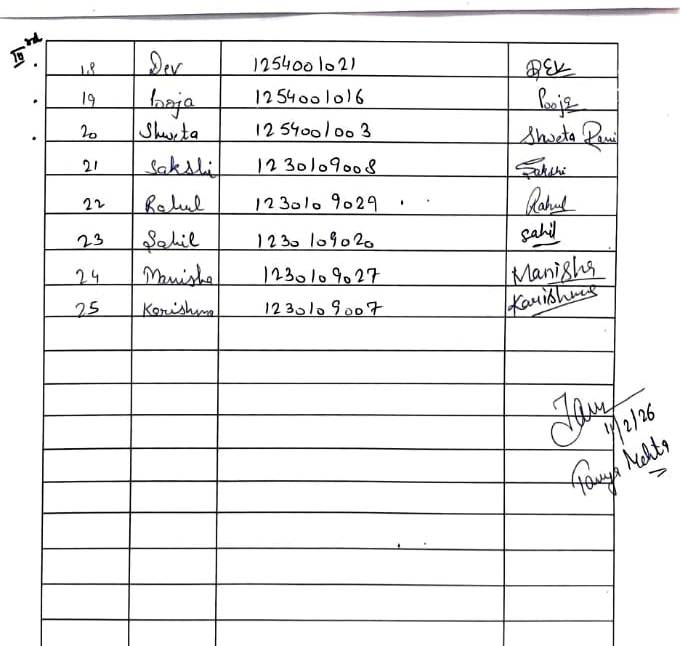 IIIrd
18 Dev 1254001021 DEV
19 Pooja 1254001016 Pooja
20 Shweta 1254001003 Shweta Rani
21 Sakshi 1230109008 Sakshi
22 Rahul 1230109029 Rahul
23 Sahil 1230109020 Sahil
24 Manisha 1230109027 Manisha
25 Karishma 1230109007 Karishma
11/2/26
Tanya Mehta